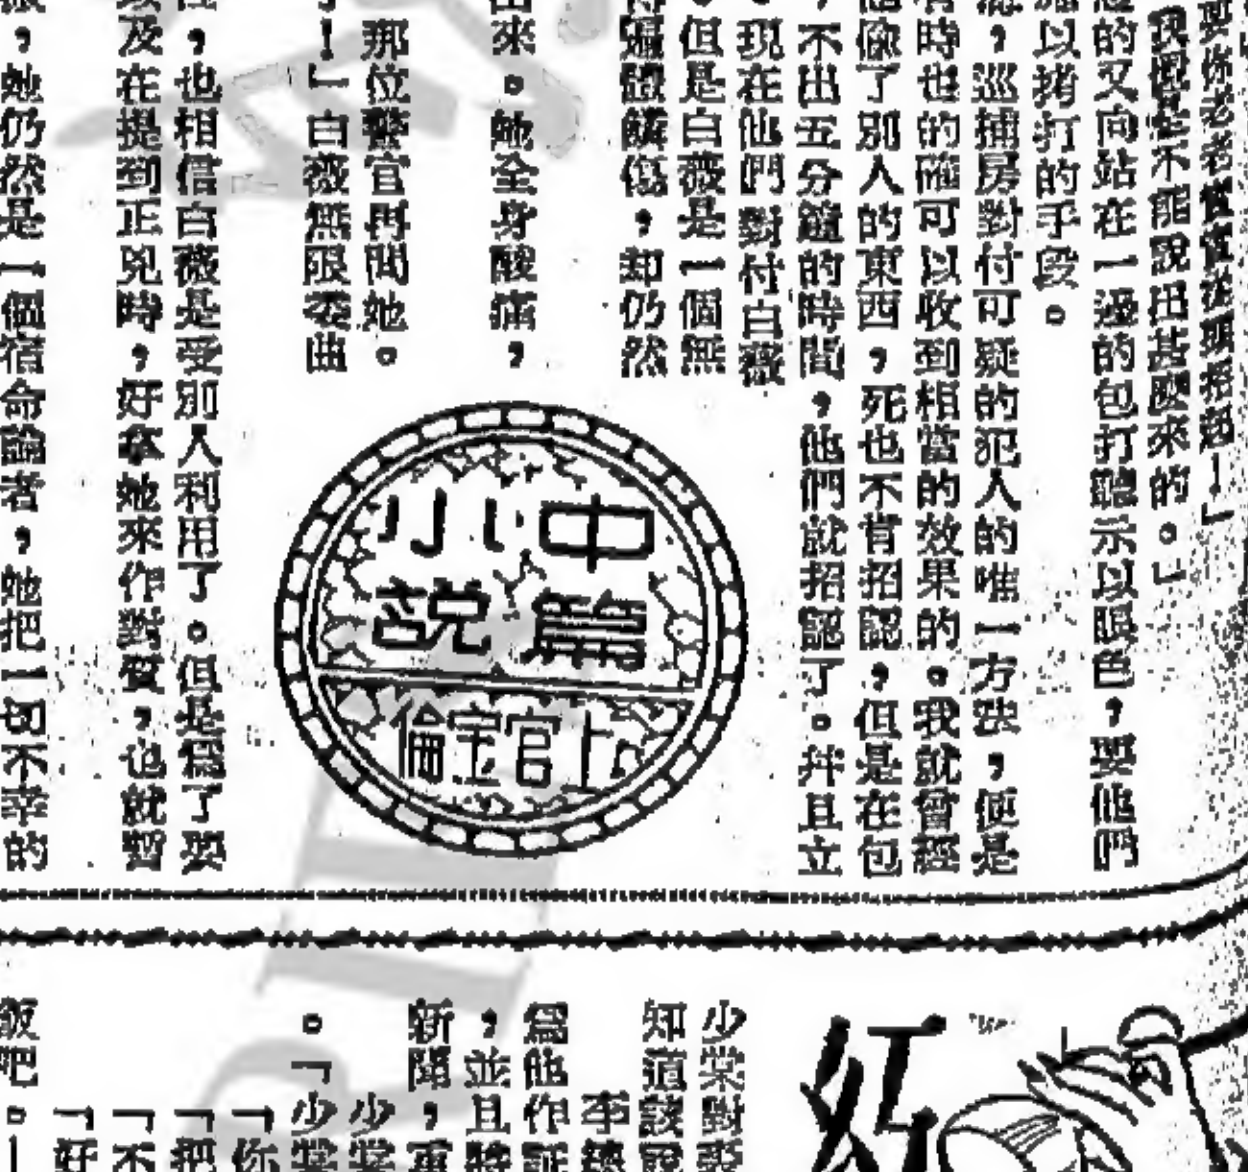 要你老老實實法頭招起！」
我想是不能說出甚麼來的。」
的又向站在一邊的包打聽示以眼色，要他們
施以拷打的手段。
，巡捕房對付可疑的犯人的唯一方法，便是
時也的確可以收到相當的效果的。我就曾經
像了別人的東西，死也不肯招認，但是在包
，不出五分鐘的時間，他們就招認了。幷且立
。現在他們對付白薇
。但是白薇是一個無
得遍體鱗傷，却仍然
出來。她全身酸痛，
那位警官再問她。
！」白薇無限委曲
，也相信白薇是受別人利用了。但是爲了要
以及在提到正兇時，好拿她來作對質，也就暫
，她仍然是一個宿命論者，她把一切不幸的
中篇
小說
上官宝倫
紅
少棠對
知道該說
李
爲他作証
，並且將
新聞，
少棠
。「少棠
「你
「把
「不
「好
飯吧。